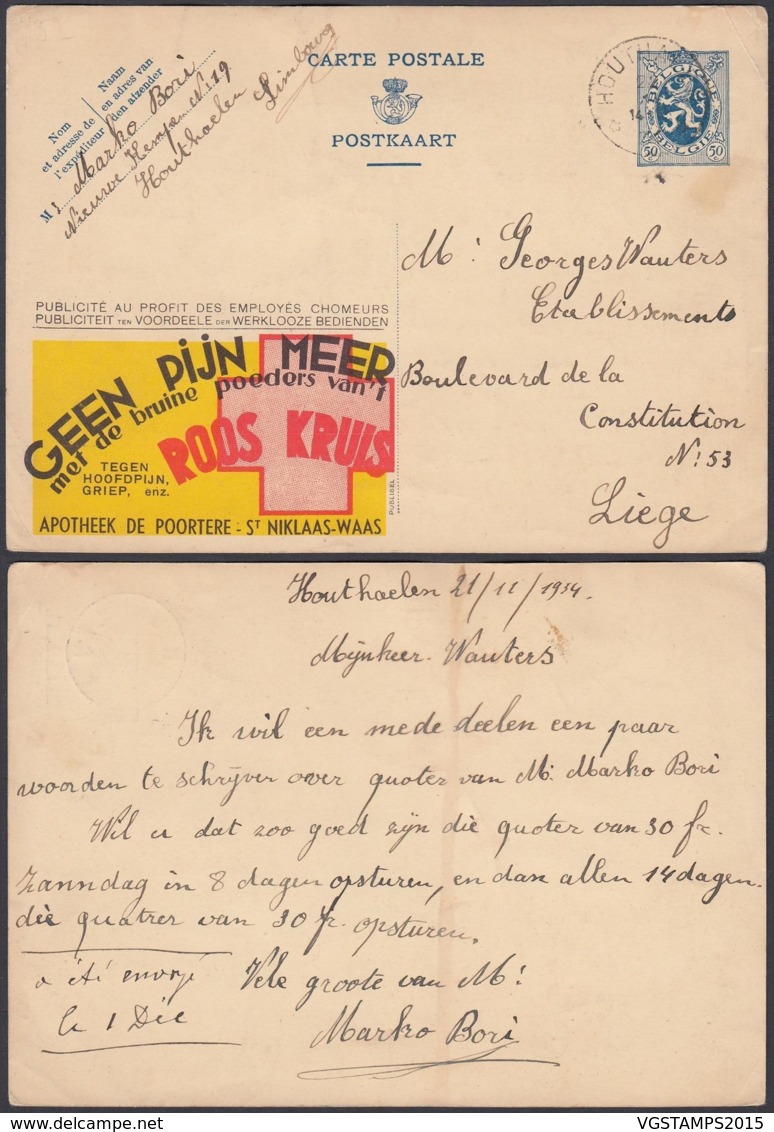 CARTE POSTALE
POSTKAART
Nom
et adresse de
l'expéditeur
Naam
en adres van
den afzender
M r Marko Bori
Nieuwe Kempe No: 19
Houthaelen Limbourg
HOUTHA
14
BELGIQUE
BELGIË
50 c 50 c
PUBLICITÉ AU PROFIT DES EMPLOYÉS CHOMEURS
PUBLICITEIT TEN VOORDEELE DER WERKLOOZE BEDIENDEN
GEEN PIJN MEER
met de bruine poeders van't
ROOS KRUIS
TEGEN
HOOFDPIJN,
GRIEP, enz.
APOTHEEK DE POORTERE - ST NIKLAAS-WAAS
PUBLIBEL
Mr: Georges Wauters
Etablissements
Boulevard de la
Constitution
No: 53
Liege
Houthaelen 21/11/1934.
Mijnheer. Wauters
Ik wil een mede deelen een paar
woorden te schrijver over quoter van M: Marko Bori
Wil u dat zoo goed zijn die quoter van 30 fr.
Zanndag in 8 dagen opsturen, en dan allen 14 dagen.
die quatrer van 30 fr. opsturen.
a été envoyé
le 1 Déc
Vele groote van Mr:
Marko Bori
VGSTAMPS2015